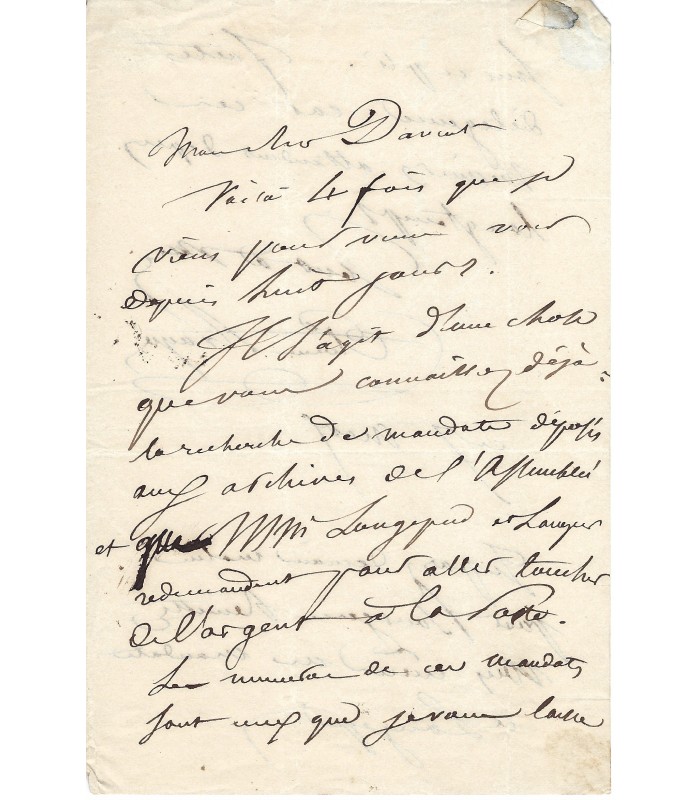 Mon cher Dariut
Voilà 4 fois que je
viens pour vous voir
depuis huit jours.
Il s'agit d'une chose
que vous connaissez déjà.
la recherche de mandats déposés
aux archives de l'Assemblée
et que MM.
redemandent pour aller toucher
de l'argent à la Poste.
Les numéros de ces mandats
sont ceux que je vous laisse